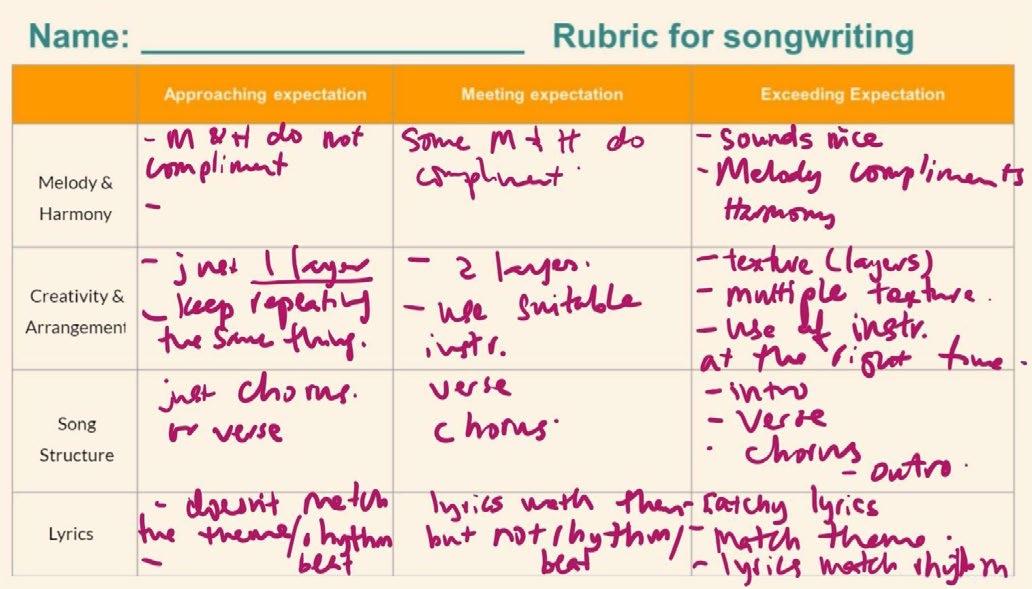 Name: ____________________ Rubric for songwriting
Approaching expectation
Meeting expectation
Exceeding Expectation
Melody &
Harmony
- M & H do not
compliment
-
Some M & H do
compliment.
- Sounds nice
- Melody compliments
Harmony
Creativity &
Arrangement
- just 1 layer
- keep repeating
the same thing.
- 2 layers.
- use suitable
instr.
- texture (layers)
- multiple texture.
- use of instr.
at the right time.
Song
Structure
just chorus.
or verse
verse
chorus.
- intro
- Verse
· chorus
- outro.
Lyrics
- doesn't match
the theme/rhythm
- beat
lyrics math them
but not rhythm/
beat
- catchy lyrics
- match theme.
- lyrics match rhythm